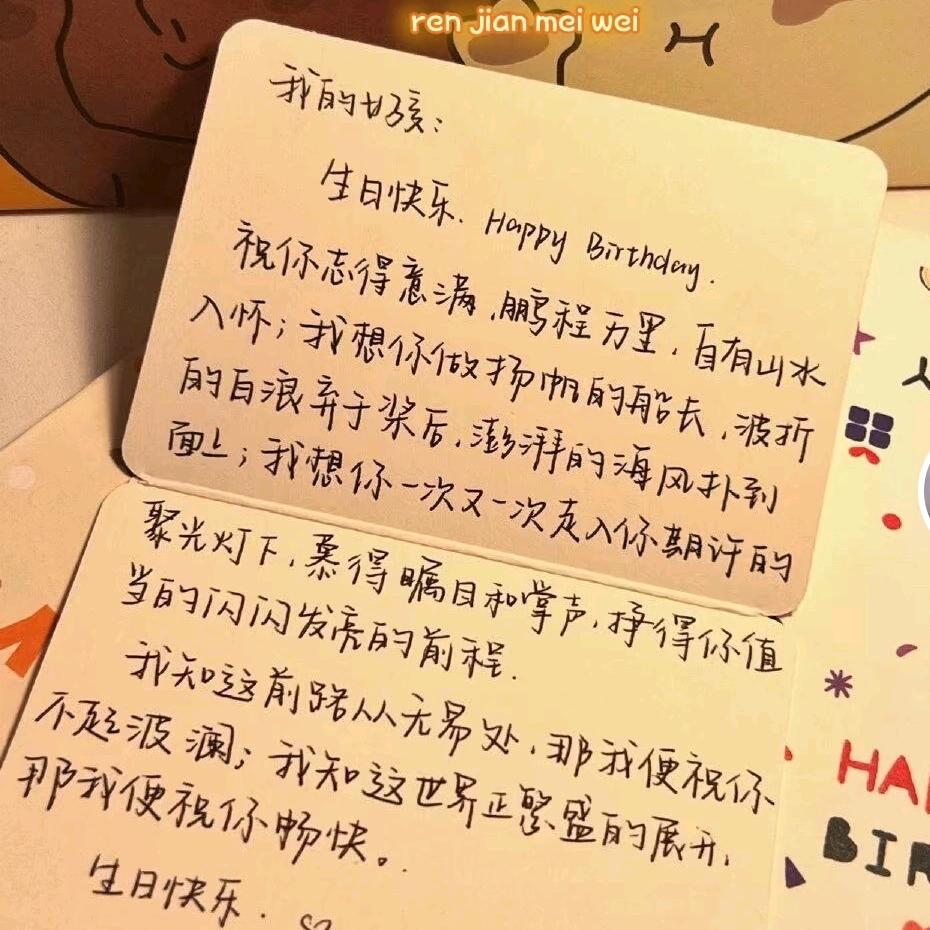 ren jian mei wei
我的女孩：
生日快乐. Happy Birthday.
祝你志得意满,鹏程万里,自有山水
入怀；我想你做扬帆的船长,波折
的白浪弃于桨后,澎湃的海风扑到
面上；我想你一次又一次走入你期许的
聚光灯下,慕得瞩目和掌声,挣得你值
当的闪闪发亮的前程.
我知这前路从无易处,那我便祝你
不起波澜；我知这世界正繁盛的展开,
那我便祝你畅快。
生日快乐.
HA
BIR